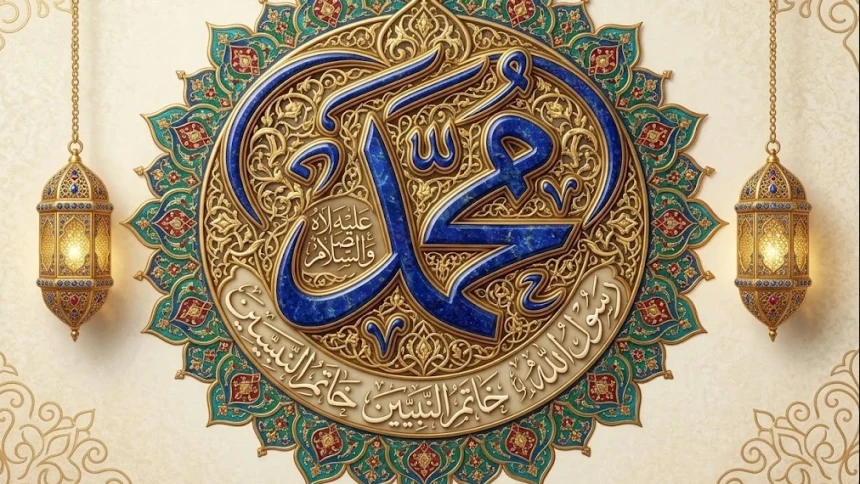 محمد
عليه لاة
والسلام
رسول الله وخاتم النبيين خاتم النبيين